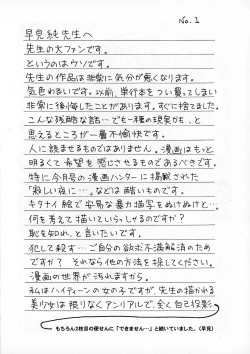 No.1
早見純先生へ
先生の大ファンです。
というのはウソです。
先生の作品は非常に気分が悪くなります。
気色わるいです。以前、単行本をつい買ってしまい
非常に後悔したことがあります。すぐに捨てました。
こんな残酷な話…でも一種の現実かも、と
思えるところが一層不愉快です。
人に読ませるものではありません。漫画はもっと
明るくて希望を感じさせるものであるべきです。
特に今月号の漫画ハンターに掲載された
「寂しい夜に…」などは酷いものです。
キタナイ絵で安易な暴力描写をぬけぬけと…
何を考えて描いていらっしゃるのですか?
恥を知れ、と言いたいです。
犯して殺す…ご自分の欲求不満解消のため
ですか? それなら他の方法を探してください。
漫画の世界が汚れますから。
私はハイティーンの女の子ですが、先生の描かれる
美少女は限りなくアンリアルで、全く自己投影
もちろん2枚目の便せんに「できません…」と続いていました。(早見)